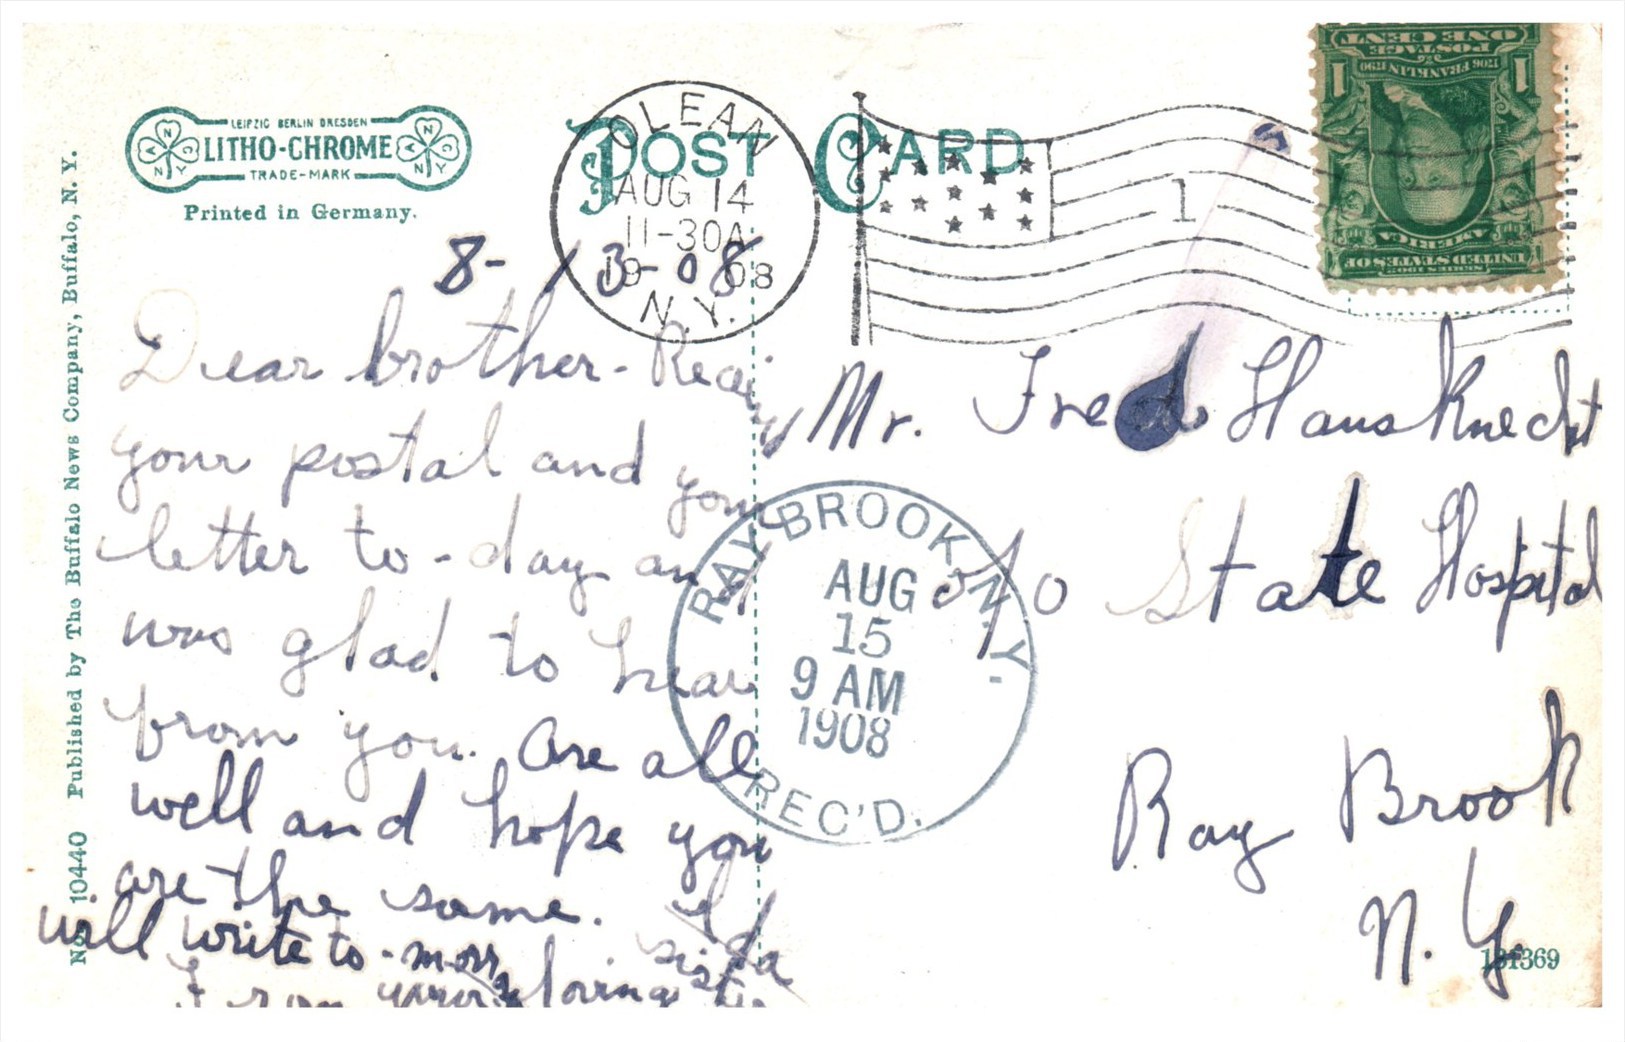 LEIPZIG BERLIN DRESDEN
LITHO-CHROME
TRADE-MARK
A N C Y
A N C Y
Printed in Germany.
POST CARD
OLEAN
AUG 14
11-30A
1908
N.Y.
1
ONE CENT
POSTAGE
1706 FRANKLIN 1790
1 1
AMERICA
UNITED STATES OF
SERIES 1902
No. 10440 Published by The Buffalo News Company, Buffalo, N. Y.
8-13-08
Dear brother - Recei
your postal and your
letter to-day and
was glad to hear
from you. Are all
well and hope you
are the same. Ida
will write to-morr
From your loving sister
Mr. Fred Hausknecht
State Hospital
Ray Brook
N. Y.
RAY BROOK, N.Y.
AUG
15
9 AM
1908
REC'D.
131369